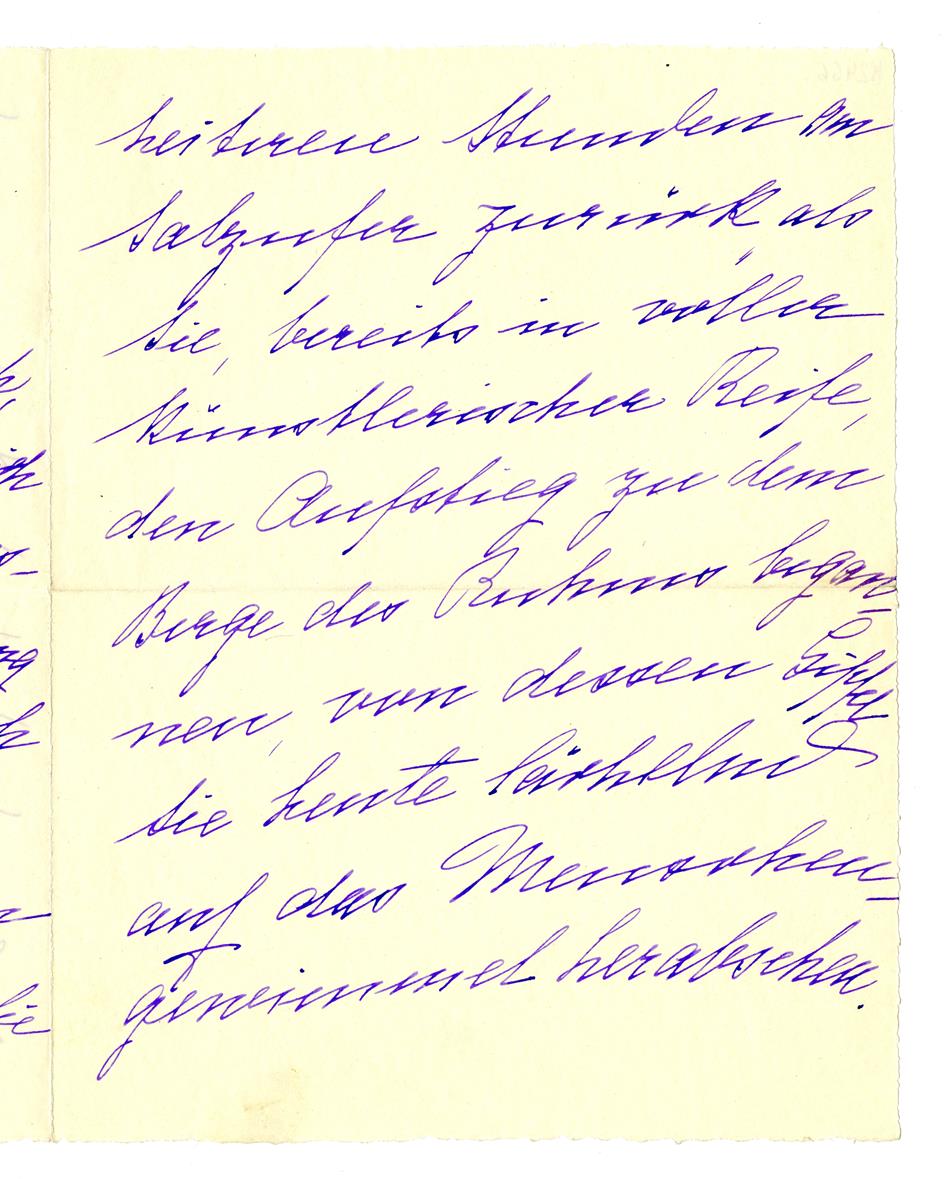 heiteren Stunden am
Salzufer zurück, als
Sie, bereits in voller
künstlerischer Reife,
den Aufstieg zu dem
Berge des Ruhms began-
nen, von dessen Gipfel
Sie heute lächelnd
auf das Menschen-
gewimmel herabsehen.